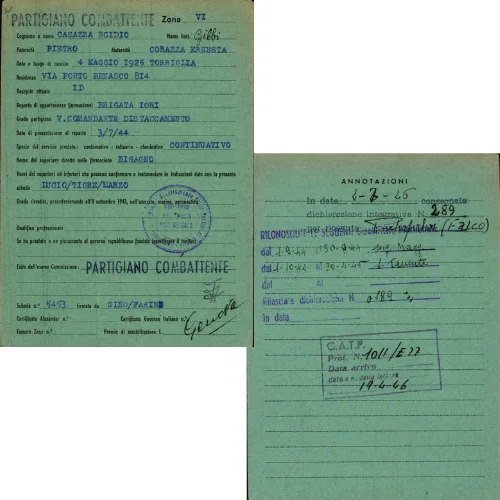 PARTIGIANO COMBATTENTE Zona VI
Cognome e nome CASAZZA EGIDIO Nome batt. Gibbi
Paternità PIETRO Maternità CORAZZA ERNESTA
Data e luogo di nascita 4 MAGGIO 1925 TORRIGLIA
Residenza VIA PORTO BENASCO 814
Recapito attuale ID
Reparto di appartenenza (formazione) BRIGATA IORI
Grado partigiano V.COMANDANTE DISTACCAMENTO
Data di presentazione al reparto 3/7/44
Specie del servizio prestato: continuativo - saltuario - clandestino CONTINUATIVO
Nome del superiore diretto nella formazione BISAGNO
Nomi dei superiori od inferiori che possano confermare e testimoniare le indicazioni date con la presente
scheda LUCIO/TIGRE/MARZO
Grado rivestito, precedentemente all'8 settembre 1943, nell'esercito, marina, aeronautica
Qualifica professionale
Se ha prestato o no giuramento al governo repubblicano
Esito dell'esame Commissione: PARTIGIANO COMBATTENTE
Scheda n.° 5453 firmata da GINO/FARINE
Certificato Alexander n.° Certificato Governo Italiano n.°
Tessera Zona n.° Premio di smobilitazione L.
Genova
ANNOTAZIONI
In data 4-7-46 consegnata
dichiarazione integrativa N. 289
dal 1-9-44 al 30-9-44
dal 1-10-44 al 30-4-45
dal al
Rilasciata dichiarazione N. 0189
in data
C.A.T.P.
Prot. N. 1011/E77
Data arrivo
data e n. della lettera
19-4-46